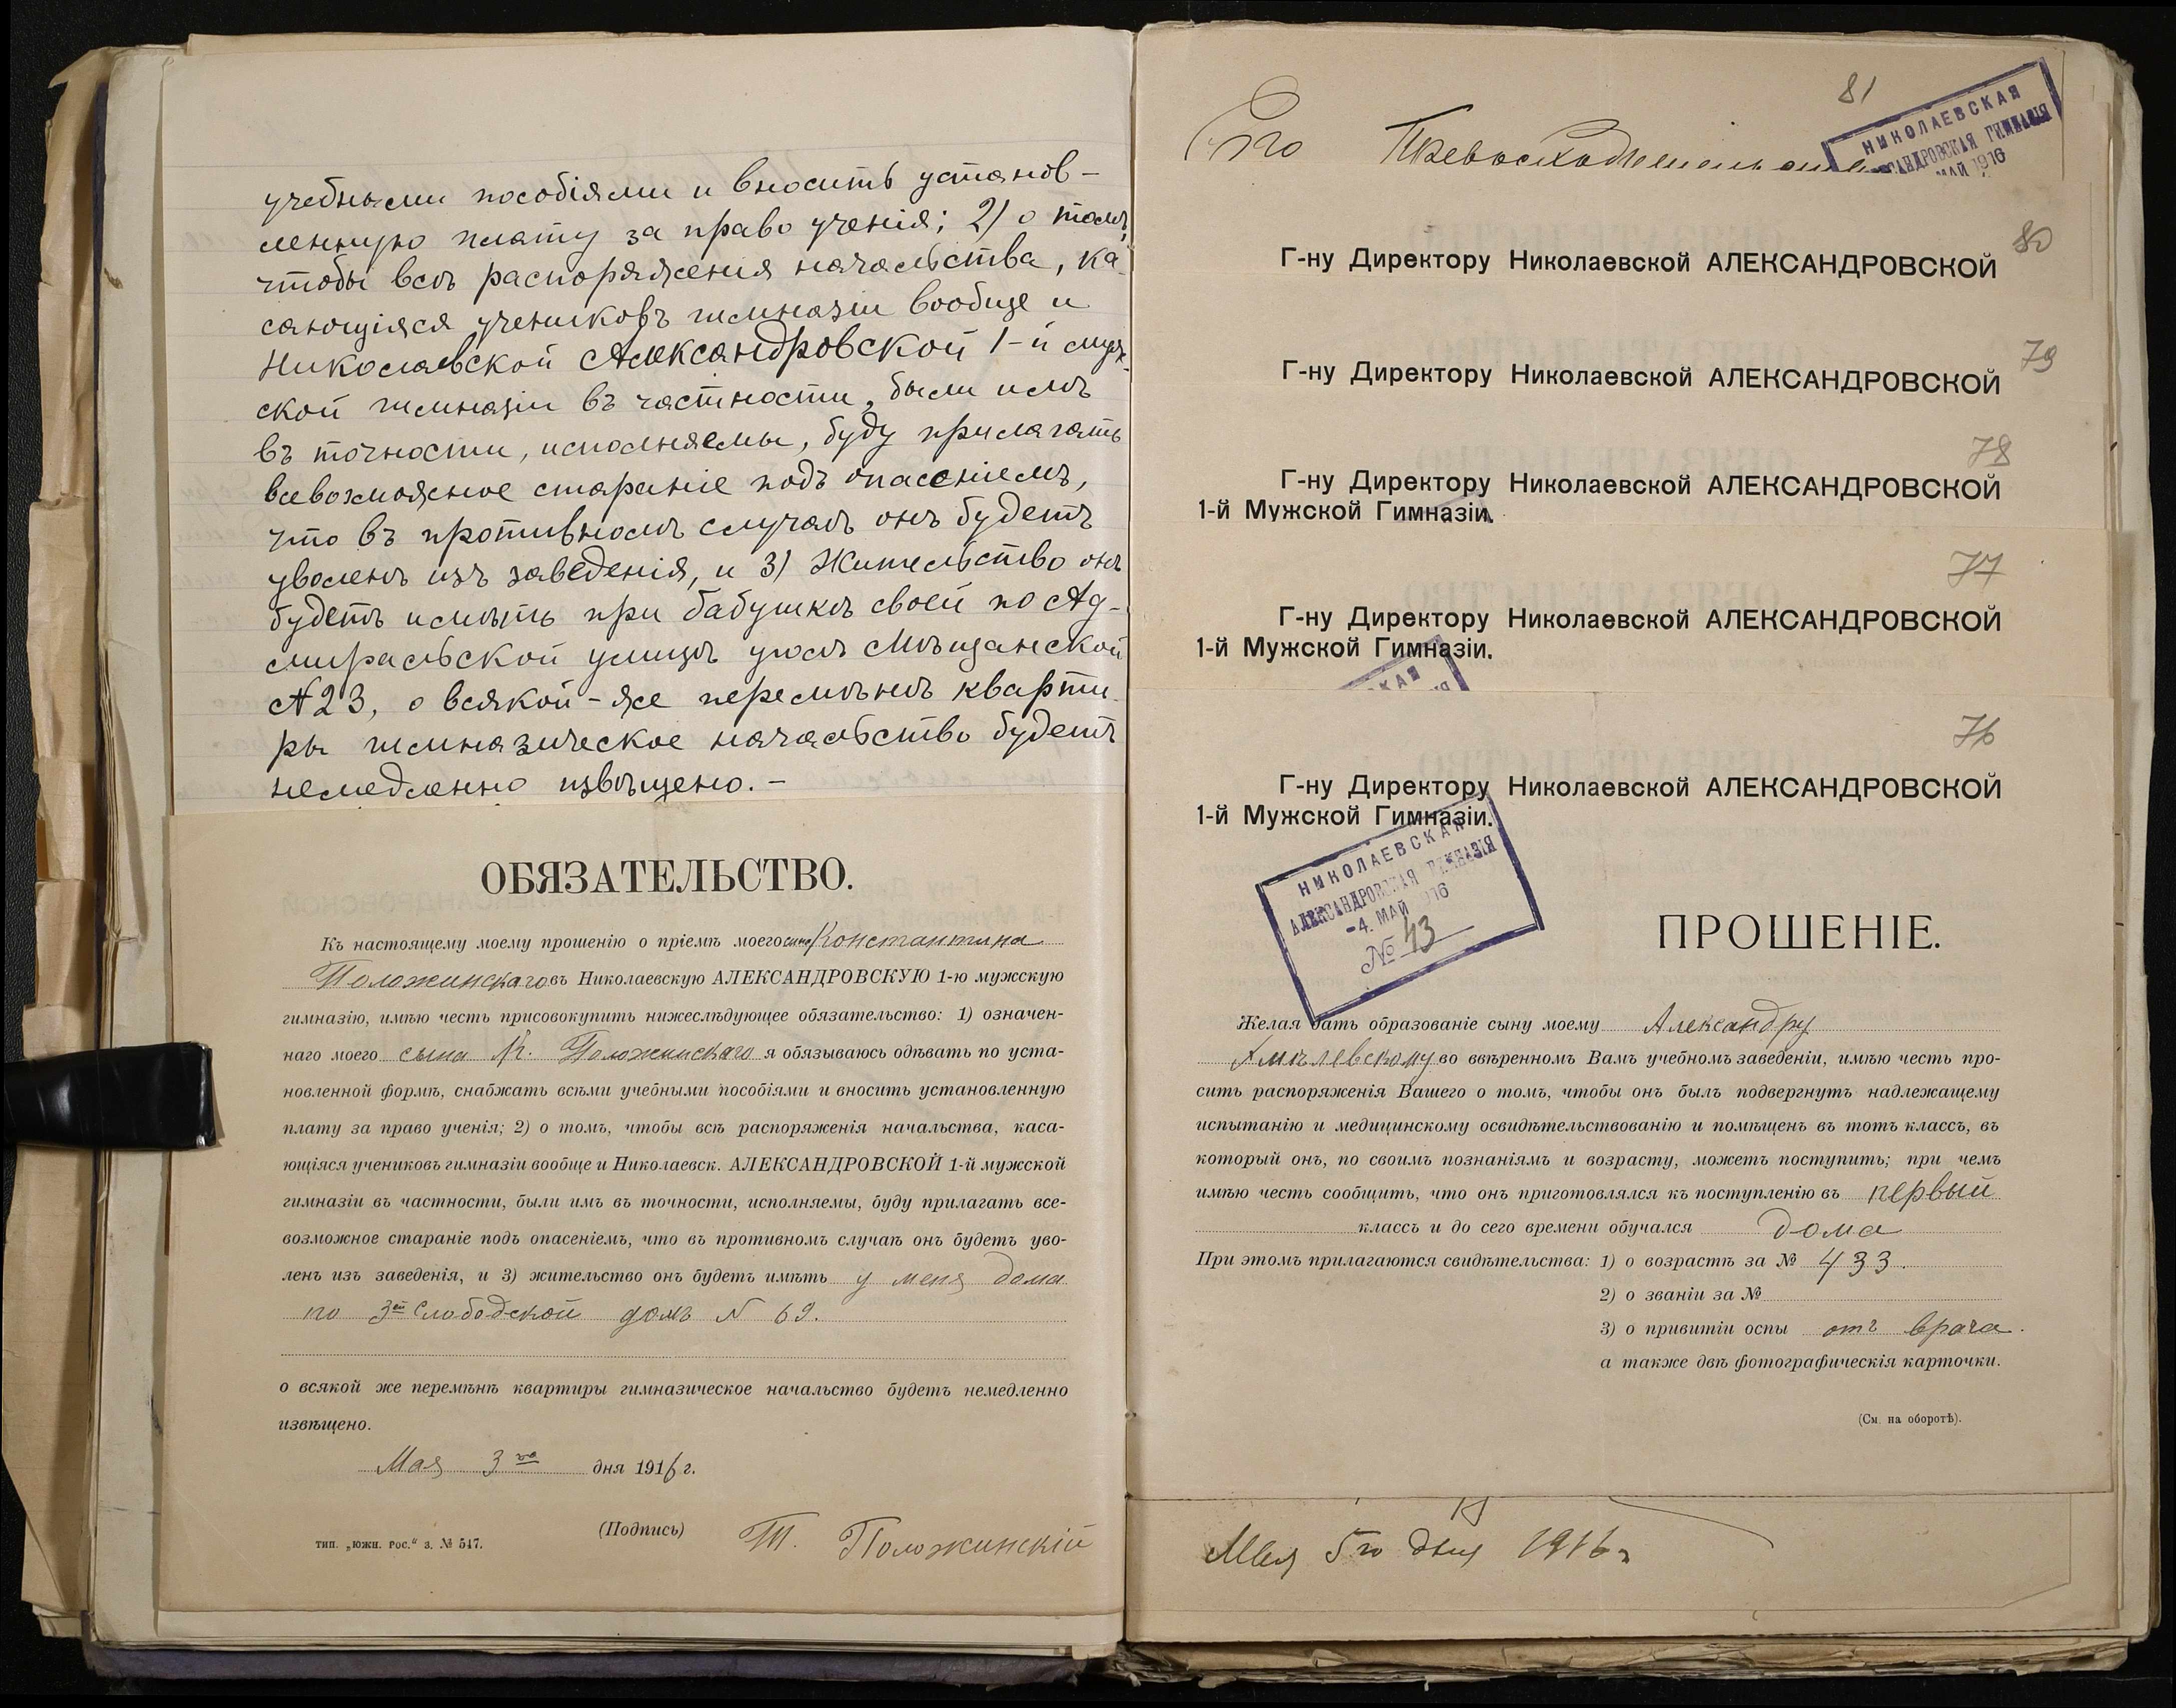 учебными пособіями и вносить установ-
ленную плату за право ученія; 2) о томъ,
чтобы всѣ распоряженія начальства, ка-
сающіяся учениковъ гимназіи вообще и
Николаевской Александровской 1-й муж-
ской гимназіи въ частности, были имъ
въ точности, исполняемы, буду прилагать
всевозможное стараніе подъ опасеніемъ,
что въ противномъ случаѣ онъ будетъ
уволенъ изъ заведенія, и 3) Жительство онъ
будетъ имѣть при бабушкѣ своей по Ад-
миральской улицѣ уголъ Мѣщанской
№23, о всякой-же перемѣнѣ кварти-
ры гимназическое начальство будетъ
немедленно извѣщено.-
ОБЯЗАТЕЛЬСТВО.
Къ настоящему моему прошенію о пріемѣ моего сына Константина
Положинскаго въ Николаевскую АЛЕКСАНДРОВСКУЮ 1-ю мужскую
гимназію, имѣю честь присовокупить нижеслѣдующее обязательство: 1) означен-
наго моего сына К. Положинскаго я обязываюсь одѣвать по уста-
новленной формѣ, снабжать всѣми учебными пособіями и вносить установленную
плату за право ученія; 2) о томъ, чтобы всѣ распоряженія начальства, каса-
ющіяся учениковъ гимназіи вообще и Николаевск. АЛЕКСАНДРОВСКОЙ 1-й мужской
гимназіи въ частности, были имъ въ точности, исполняемы, буду прилагать все-
возможное стараніе подъ опасеніемъ, что въ противномъ случаѣ онъ будетъ уво-
ленъ изъ заведенія, и 3) жительство онъ будетъ имѣть у меня дома
по 3ей Слободской домъ N 69.
о всякой же перемѣнѣ квартиры гимназическое начальство будетъ немедленно
извѣщено.
Мая 3го дня 1916 г.
(Подпись) Т. Положинскій
тип. „южн. рос.“ з. № 547.
81
Его Превосходительству
НИКОЛАЕВСКАЯ
АЛЕКСАНДРОВСКАЯ ГИМНАЗІЯ
МАЙ 1916
80
Г-ну Директору Николаевской АЛЕКСАНДРОВСКОЙ
79
Г-ну Директору Николаевской АЛЕКСАНДРОВСКОЙ
78
Г-ну Директору Николаевской АЛЕКСАНДРОВСКОЙ
1-й Мужской Гимназіи.
77
Г-ну Директору Николаевской АЛЕКСАНДРОВСКОЙ
1-й Мужской Гимназіи.
76
Г-ну Директору Николаевской АЛЕКСАНДРОВСКОЙ
1-й Мужской Гимназіи.
НИКОЛАЕВСКАЯ
АЛЕКСАНДРОВСКАЯ ГИМНАЗІЯ
-4. МАЙ 1916
№ 43
ПРОШЕНІЕ.
Желая дать образованіе сыну моему Александру
Хмѣлевскому во ввѣренномъ Вамъ учебномъ заведеніи, имѣю честь про-
сить распоряженія Вашего о томъ, чтобы онъ былъ подвергнутъ надлежащему
испытанію и медицинскому освидѣтельствованію и помѣщенъ въ тотъ классъ, въ
который онъ, по своимъ познаніямъ и возрасту, можетъ поступить; при чемъ
имѣю честь сообщить, что онъ приготовлялся къ поступленію въ первый
классъ и до сего времени обучался дома
При этомъ прилагаются свидѣтельства: 1) о возрастѣ за № 433.
2) о званіи за №
3) о привитіи оспы отъ врача.
а также двѣ фотографическія карточки.
(См. на оборотѣ).
Мая 5го дня 1916 г